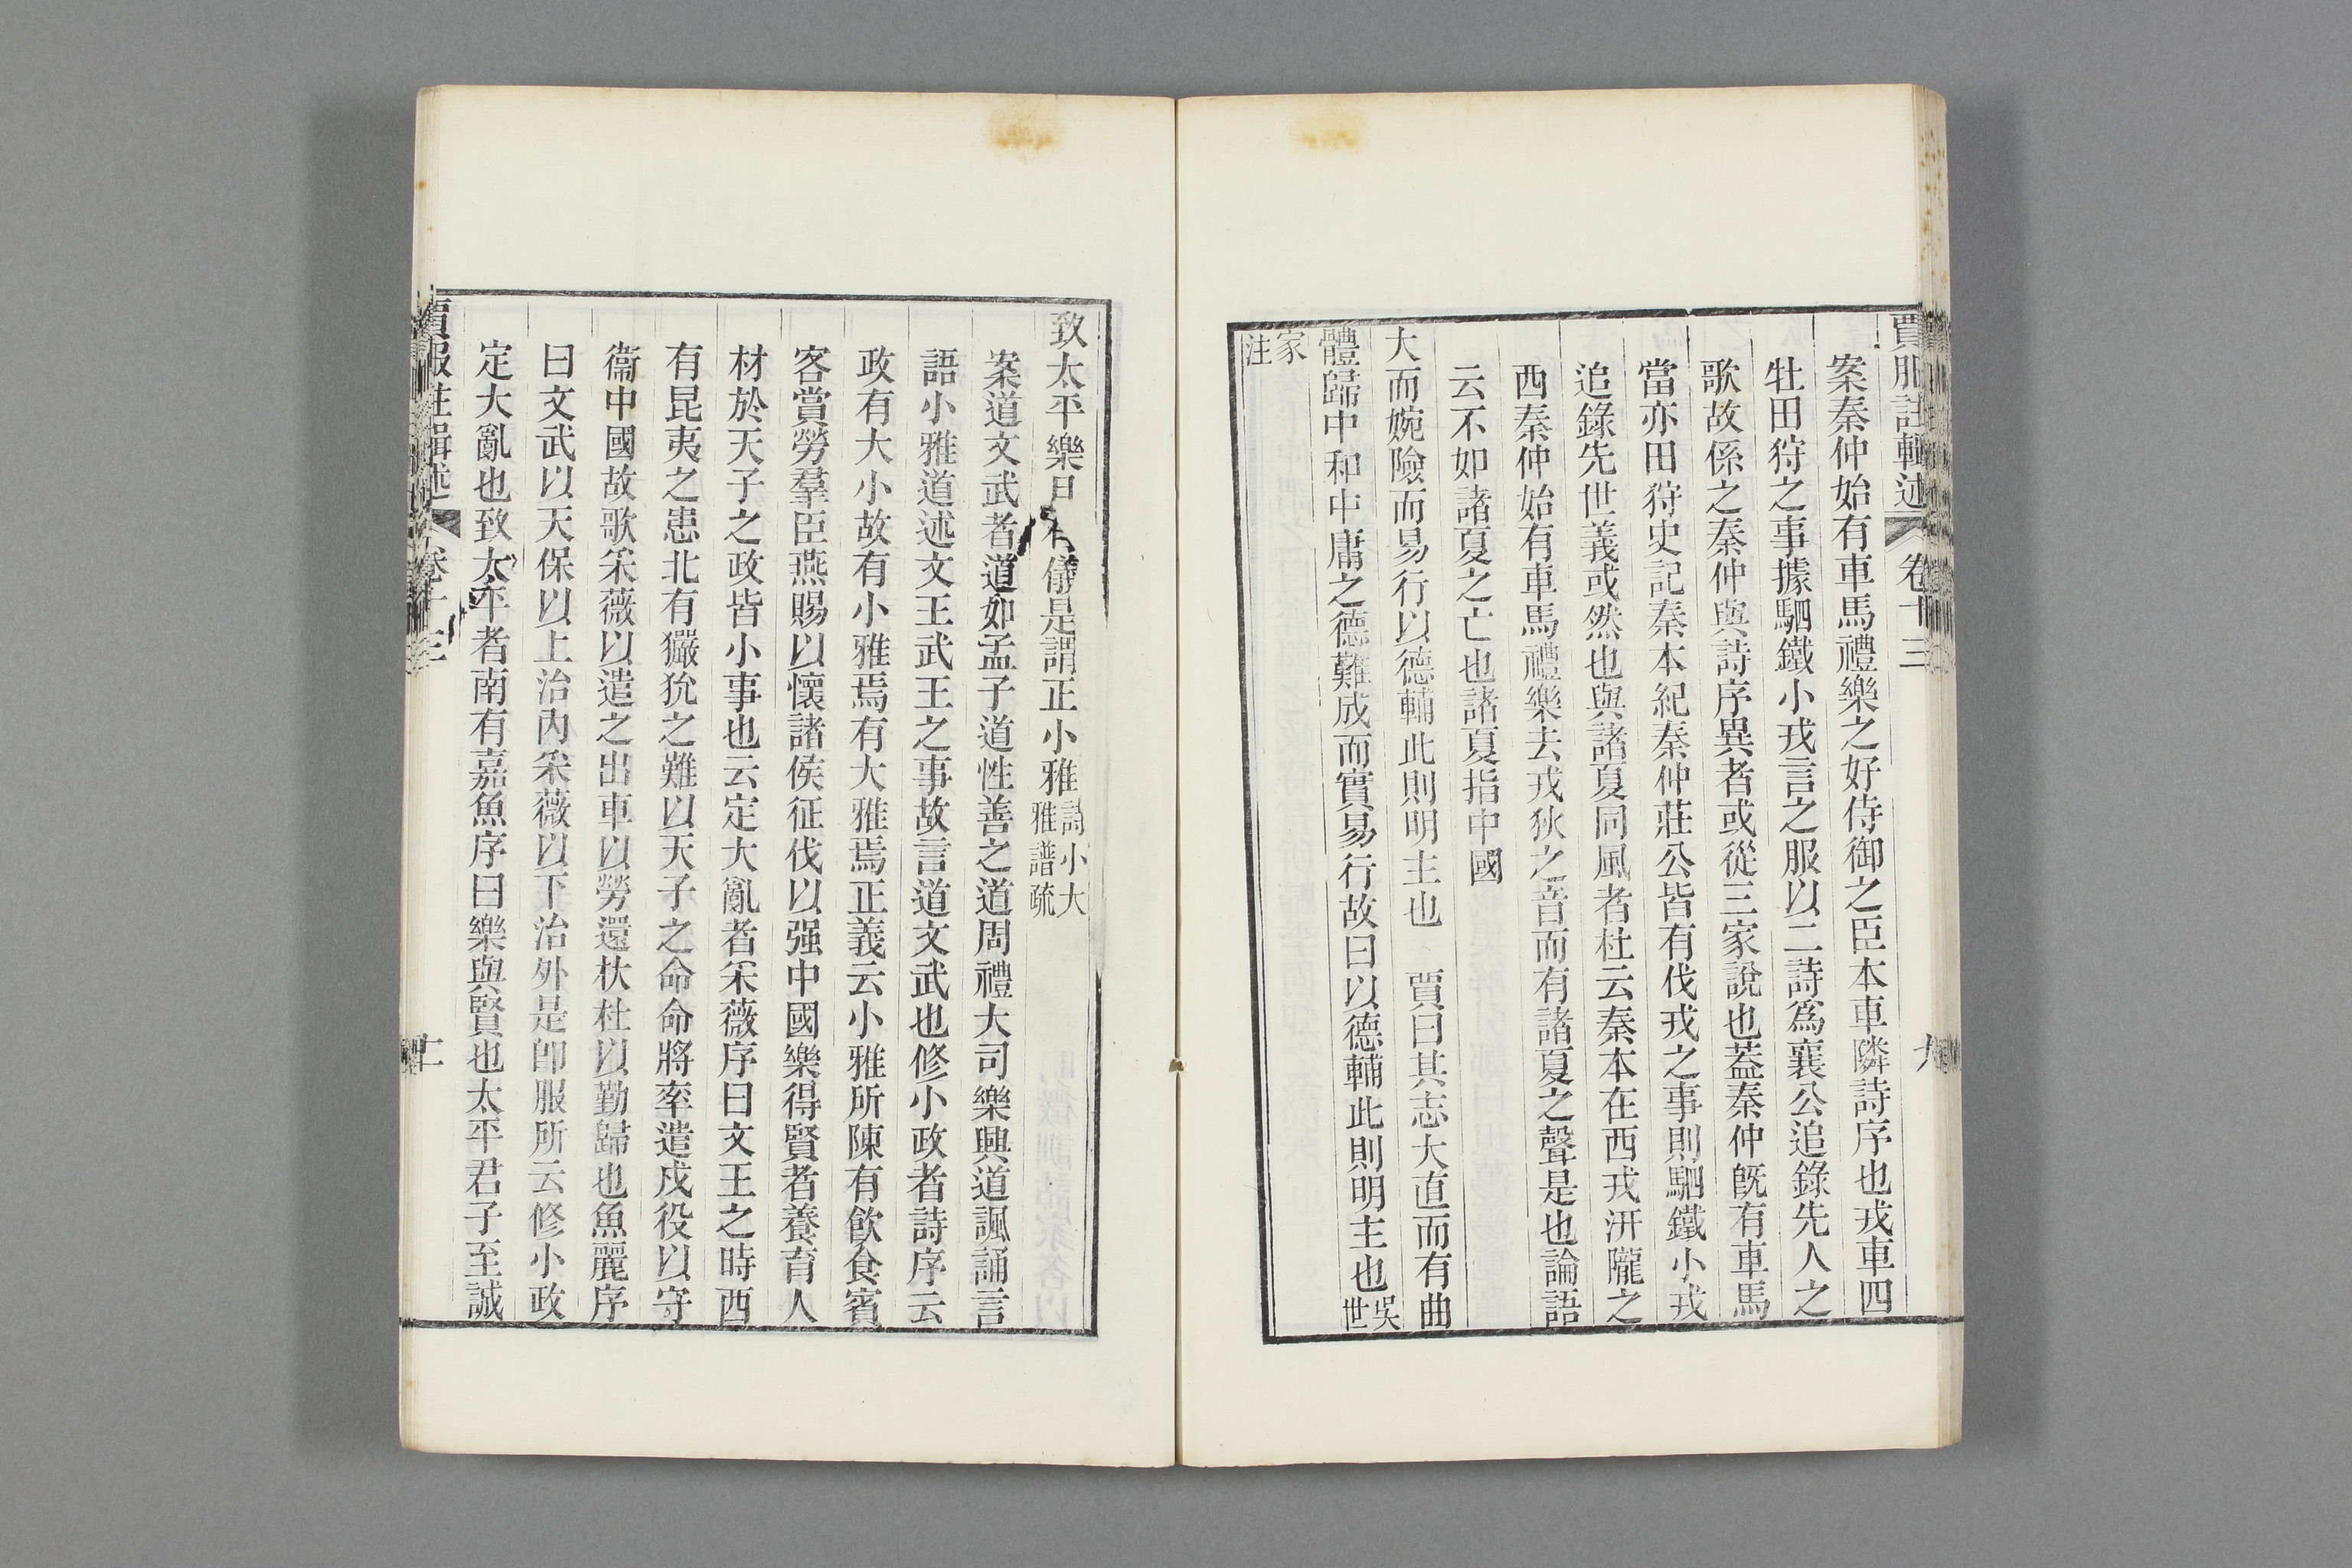 賈服註輯述 卷十三 九
案秦仲始有車馬禮樂之好侍御之臣本車隣詩序也戎車四
牡田狩之事據駟鐵小戎言之服以二詩爲襄公追錄先人之
歌故係之秦仲與詩序異者或從三家說也蓋秦仲旣有車馬
當亦田狩史記秦本紀秦仲莊公皆有伐戎之事則駟鐵小戎
追錄先世義或然也與諸夏同風者杜云秦本在西戎汧隴之
西秦仲始有車馬禮樂去戎狄之音而有諸夏之聲是也論語
云不如諸夏之亡也諸夏指中國
大而婉險而易行以德輔此則明主也 賈曰其志大直而有曲
體歸中和中庸之德難成而實易行故曰以德輔此則明主也吳世
家注
致太平樂且有儀是謂正小雅詩小大雅譜疏
案道文武者道如孟子道性善之道周禮大司樂興道諷誦言
語小雅道述文王武王之事故言道文武也修小政者詩序云
政有大小故有小雅焉有大雅焉正義云小雅所陳有飲食賓
客賞勞羣臣燕賜以懷諸侯征伐以强中國樂得賢者養育人
材於天子之政皆小事也云定大亂者采薇序曰文王之時西
有昆夷之患北有玁狁之難以天子之命命將率遣戍役以守
衞中國故歌采薇以遣之出車以勞還杕杜以勤歸也魚麗序
曰文武以天保以上治內采薇以下治外是卽服所云修小政
定大亂也致太平者南有嘉魚序曰樂與賢也太平君子至誠
賈服註輯述 卷十三